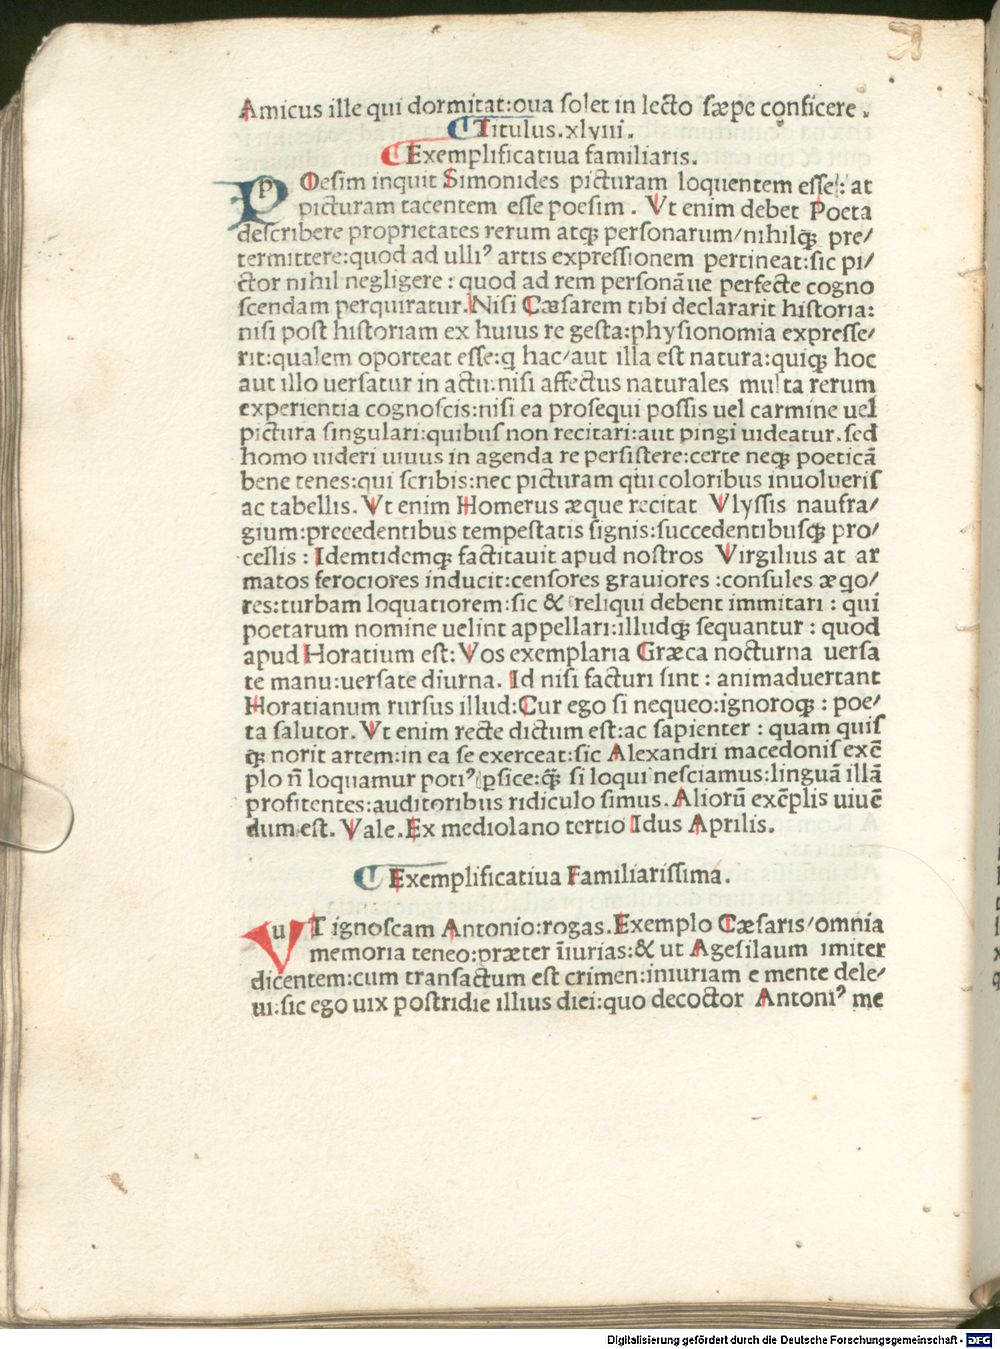 Amicus ille qui dormitat:oua solet in lecto sæpe conficere.
Titulus.xlviii.
Exemplificatiua familiaris.
POesim inquit Simonides picturam loquentem esse: at
picturam tacentem esse poesim. Vt enim debet Poeta
describere proprietates rerum atqꝫ personarum/nihilqꝫ pre/
termittere:quod ad ulliꝰ artis expressionem pertineat:sic pi/
ctor nihil negligere: quod ad rem personāue perfecte cogno
scendam perquiratur.Nisi Cæsarem tibi declararit historia:
nisi post historiam ex huius re gesta:physionomia expresse/
rit:qualem oporteat esse:q hac/aut illa est natura:quiqꝫ hoc
aut illo uersatur in actu:nisi affectus naturales multa rerum
experientia cognoscis:nisi ea prosequi possis uel carmine uel
pictura singulari:quibus non recitari:aut pingi uideatur.sed
homo uideri uiuus in agenda re persistere:certe neqꝫ poeticā
bene tenes:qui scribis:nec picturam qui coloribus inuolueris
ac tabellis. Vt enim Homerus æque recitat Vlyssis naufra/
gium:precedentibus tempestatis signis:succedentibusqꝫ pro/
cellis: Idemtidemqꝫ factitauit apud nostros Virgilius at ar
matos ferociores inducit:censores grauiores:consules æqo/
res:turbam loquatiorem:sic & reliqui debent immitari: qui
poetarum nomine uelint appellari:illudqꝫ sequantur: quod
apud Horatium est: Vos exemplaria Græca nocturna uersa
te manu:uersate diurna. Id nisi facturi sint: animaduertant
Horatianum rursus illud:Cur ego si nequeo:ignoroqꝫ: poe/
ta salutor. Vt enim recte dictum est:ac sapienter: quam quis
qꝫ norit artem:in ea se exerceat:sic Alexandri macedonis exē
plo n̄ loquamur potiꝰ ꝑsice:q̄ꝫ si loqui nesciamus:linguā illā
profitentes:auditoribus ridiculo simus. Aliorū exēplis uiuē
dum est. Vale.Ex mediolano tertio Idus Aprilis.
Exemplificatiua Familiarissima.
VT ignoscam Antonio:rogas.Exemplo Cæsaris/omnia
memoria teneo:præter īiurias:& ut Agesilaum imiter
dicentem:cum transactum est crimen:iniuriam e mente dele/
ui:sic ego uix postridie illius diei:quo decoctor Antoniꝰ me
Digitalisierung gefördert durch die Deutsche Forschungsgemeinschaft - DFG